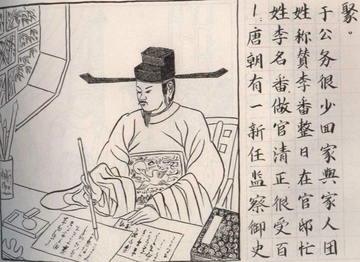 1.唐朝有一新任监察御史
姓李名番做官清正很受百
姓称赞李番整日在官邸忙
于公务很少回家與家人团
聚。